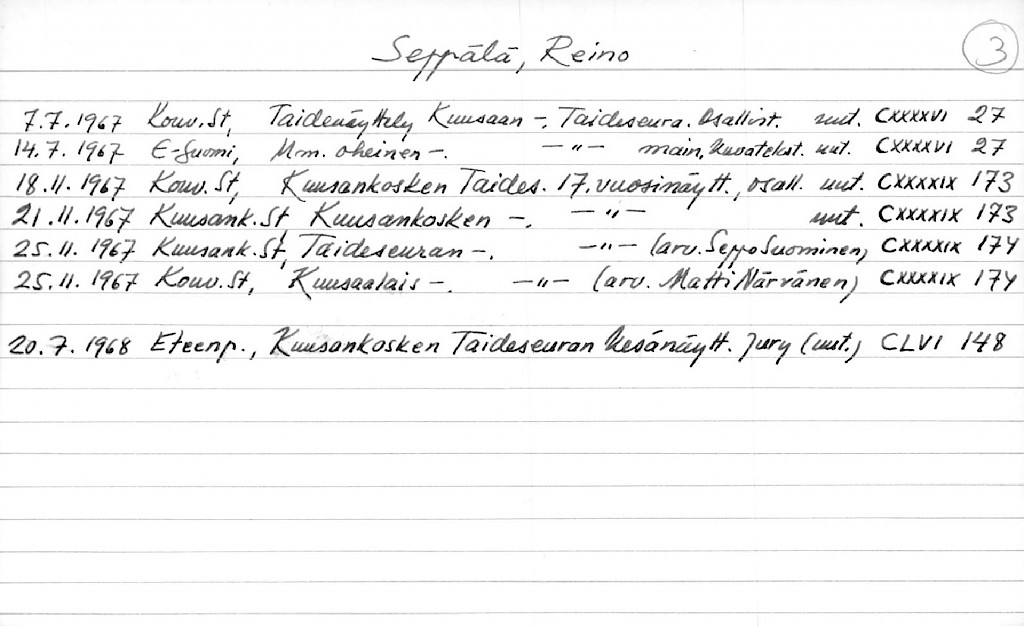 Seppälä, Reino 3
7.7.1967 Kouv.St, Taidenäyttely Kuusaan -. Taideseura. Osallist. uut. CXXXXVI 27
14.7.1967 E-Suomi, Mm. oheinen -. -"- main, kuvatekst. uut. CXXXXVI 27
18.11.1967 Kouv.St, Kuusankosken Taides. 17.vuosinäytt., osall. uut. CXXXXIX 173
21.11.1967 Kuusank.St, Kuusankosken -. -"- uut. CXXXXIX 173
25.11.1967 Kuusank.St, Taideseuran -. -"- (arv. Seppo Suominen) CXXXXIX 174
25.11.1967 Kouv.St, Kuusaalais -. -"- (arv. Matti Närvänen) CXXXXIX 174
20.7.1968 Eteenp., Kuusankosken Taideseuran Kesänäytt. Jury (uut.) CLVI 148